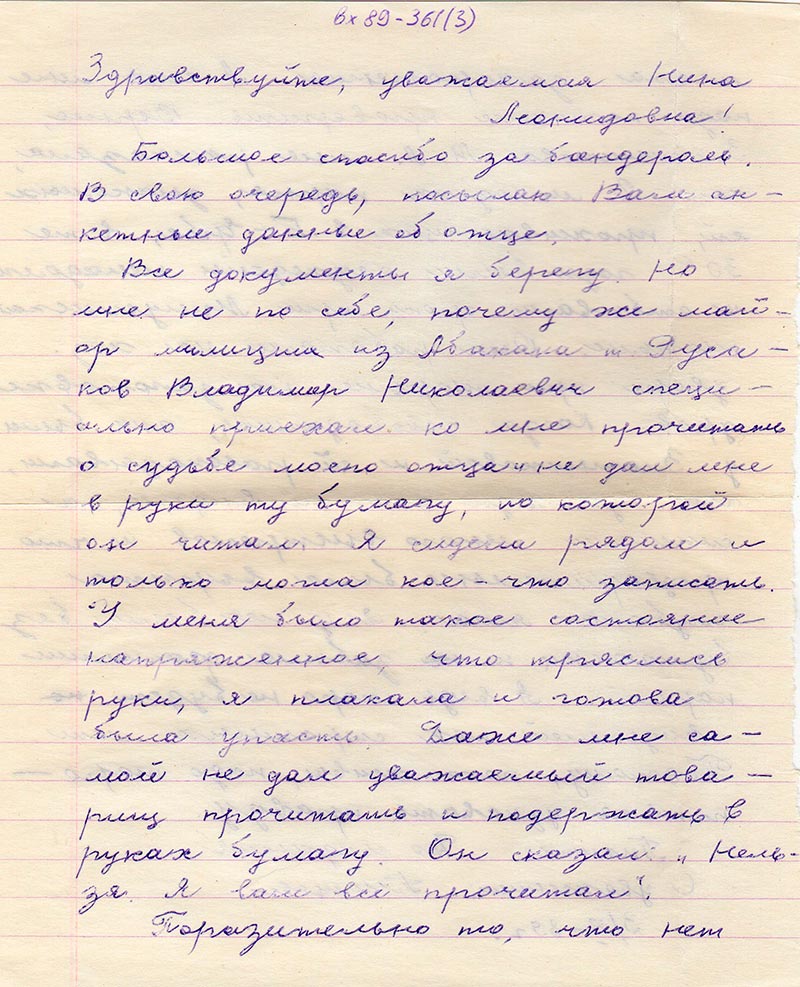 вх 89-361(3)
Здравствуйте, уважаемая Нина
Леонидовна!
Большое спасибо за бандероль.
В свою очередь, посылаю Вам ан-
кетные данные об отце.
Все документы я берегу. Но
мне не по себе, почему же май-
ор милиции из Абакана т. Руса-
ков Владимир Николаевич специ-
ально приехал ко мне прочитать
о судьбе моего отца и не дал мне
в руки ту бумагу, по которой
он читал. Я сидела рядом и
только могла кое-что записать.
У меня было такое состояние
напряженное, что тряслись
руки, я плакала и готова
была упасть. Даже мне са-
мой не дал уважаемый това-
рищ прочитать и подержать в
руках бумагу. Он сказал: „Нель-
зя. Я вам всё прочитал".
Поразительно то, что нет